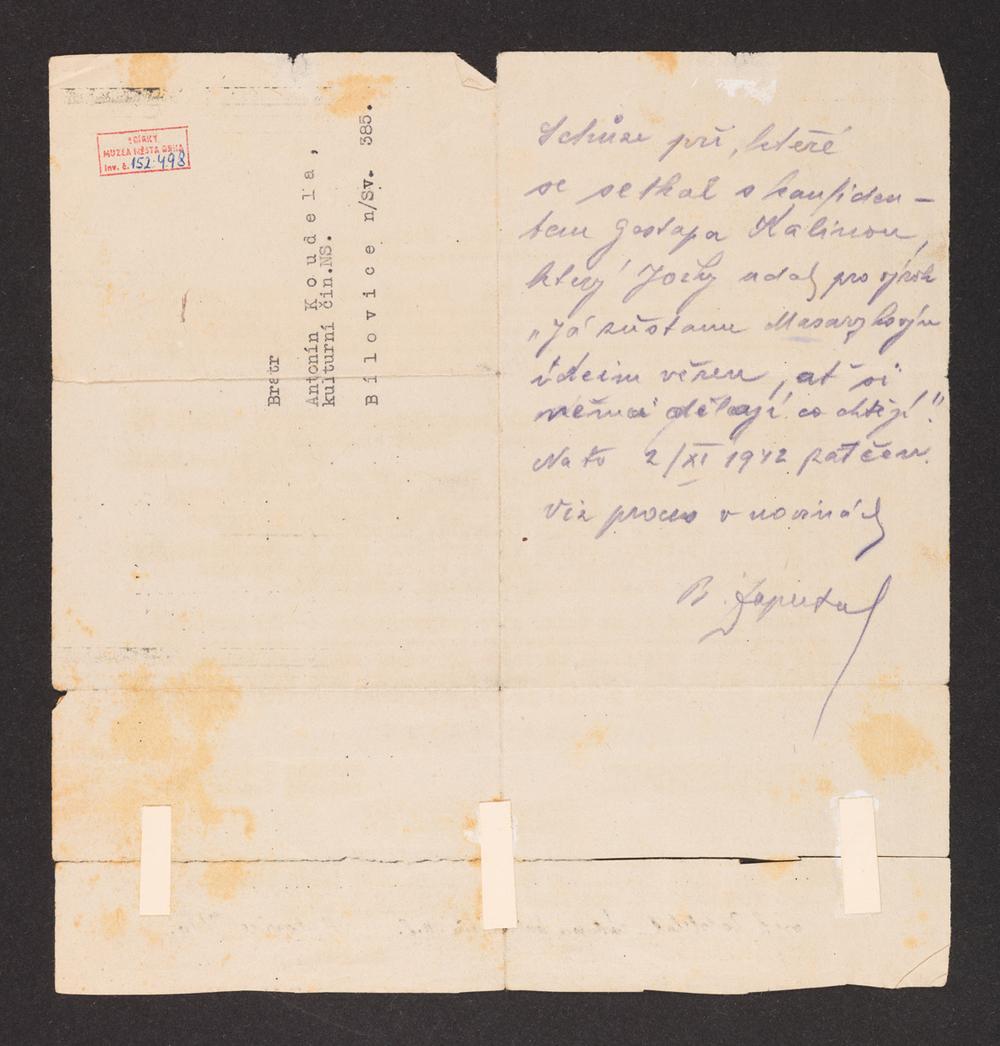 SBÍRKY
MUZEA MĚSTA BRNA
Inv. č. 152.498
Bratr
Antonín Koudela,
kulturní čin.NS.
Bílovice n/Sv. 385.
Schůze při, které
se setkal s konfiden-
tem gestapa Kalinou,
který udal pro výrok
„Já zůstanu Masarykovým
ideím věren, at si
dělají co chtějí."
Na to 2/XI 1942 zatčen.
Viz proces v novinách